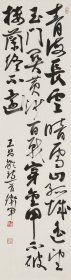 青海長雲暗雪山孤城遥望
玉門關黄沙百戰穿金甲不破
樓蘭終不還
王昌齡